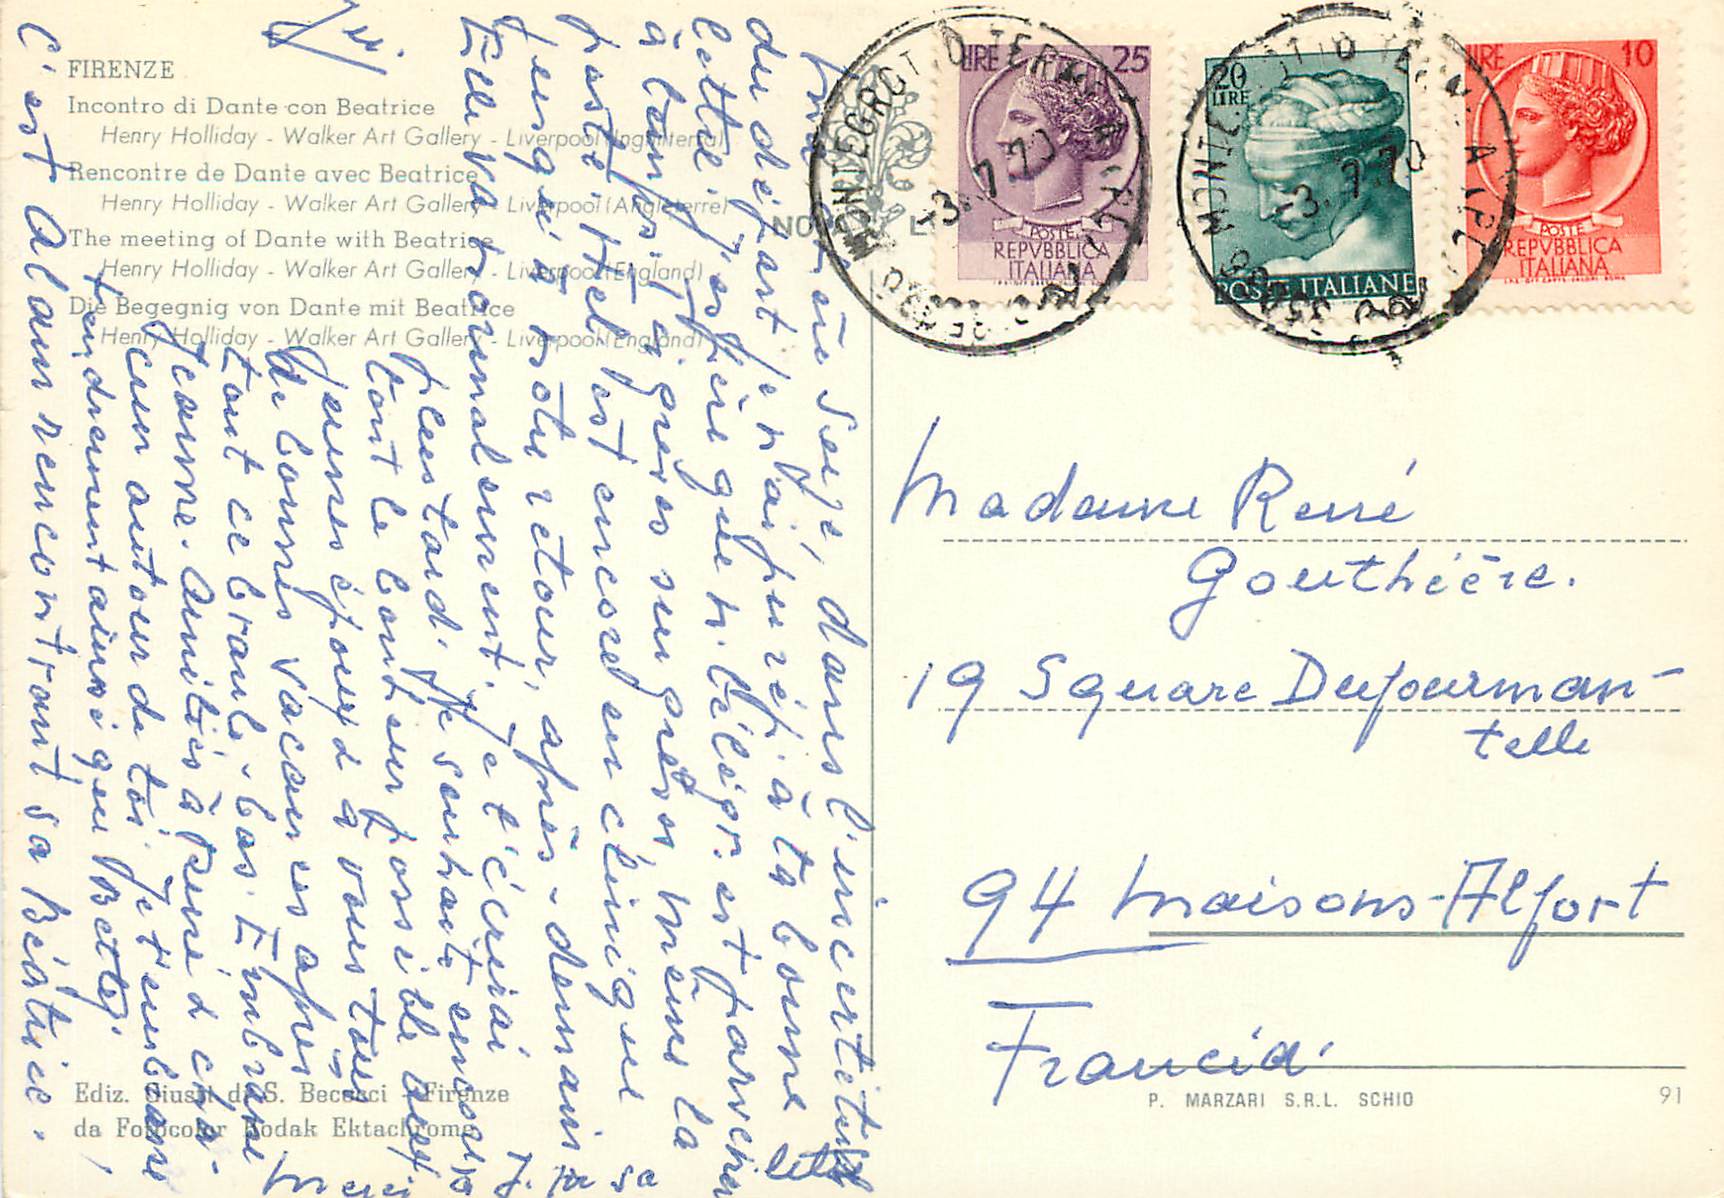 FIRENZE
Incontro di Dante con Beatrice
Henry Holliday - Walker Art Gallery - Liverpool (Inghilterra)
Rencontre de Dante avec Beatrice
Henry Holliday - Walker Art Gallery - Liverpool (Angleterre)
The meeting of Dante with Beatrice
Henry Holliday - Walker Art Gallery - Liverpool (England)
Die Begegnig von Dante mit Beatrice
Henry Holliday - Walker Art Gallery - Liverpool (England)
Ediz. Giusti di S. Becocci - Firenze
da Fotocolor Kodak Ektachrome
LIRE 25
POSTE
REPVBBLICA
ITALIANA
20
LIRE
POSTE ITALIANE
LIRE 10
POSTE
REPVBBLICA
ITALIANA
MONTEGROTTO TERME
-3.7.70
MONTEGROTTO TERME
-3.7.70
Serge, dans l'incertitude
du départ je n'ai pu rép. à ta bonne
lettre, j'espère que m. télégr. est parvenu
à temps. T. grèves sur grèves même la
poste. Htel est encore en clinique
jusqu'à notre retour, après-demain
Elle va normalement. Je t'écrirai
plus tard. Je souhaite encore
tout le bonheur possible aux
jeunes époux & à vous tous
de bonnes vacances après
tout ce branle-bas. Embrasse
Jeanne. Amitiés à René & cha-
cun autour de toi. Je t'embrasse
tendrement ainsi que Betty.
C'est Alain rencontrant sa Béatrice.
Merci
Madame René
Gouthière.
19 Square Dufourman-
telle
94 Maisons-Alfort
Francia
P. MARZARI S.R.L. SCHIO
91